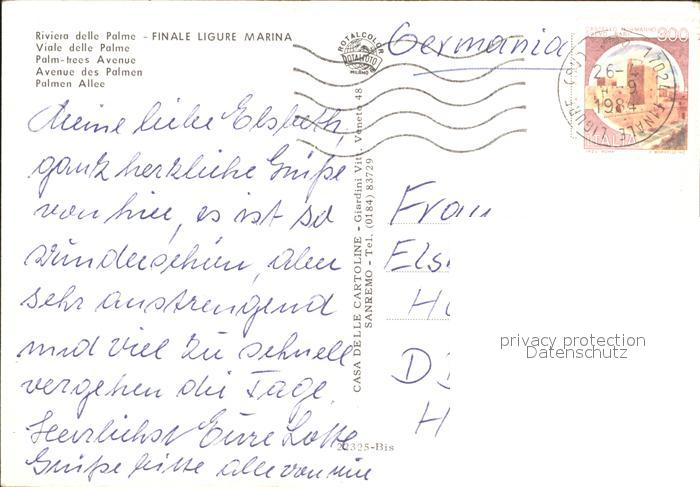 Riviera delle Palme - FINALE LIGURE MARINA
Viale delle Palme
Palm-trees Avenue
Avenue des Palmen
Palmen Allee
Meine liebe Elsbeth,
ganz herzliche Grüße
von hier, es ist so
wunderschön, aber
sehr anstrengend
und viel zu schnell
vergehen die Tage.
Herzlichst Eure Lotte
Grüße bitte alle von mir
ROTALCOLOR
ROTALFOTO
MILANO
CASA DELLE CARTOLINE - Giardini Vitt. Veneto 48
SANREMO - Tel. (0184) 83729
22325-Bis
Germania
300
17024 FINALE LIGURE
26-
-9
1984
Frau
Els
H
D
H
privacy protection
Datenschutz